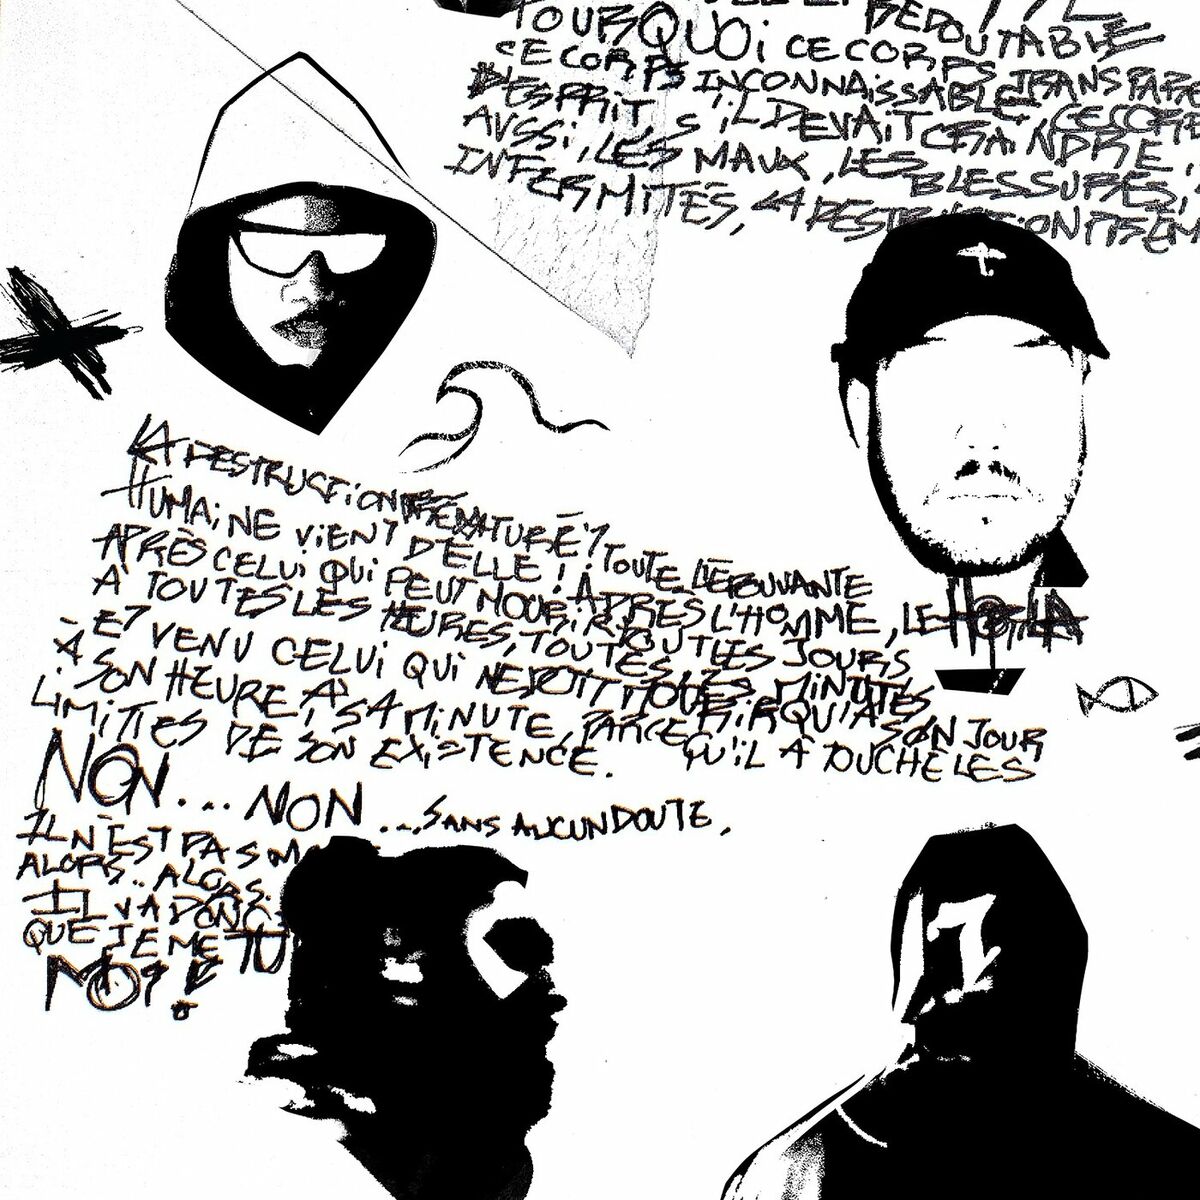 REDOUTABLE
POURQUOi CE CORPS TRANSPARE
CE CORPS INCONNAiSSABLE, CE CORPS
D'ESPRIT S'iL DEVAiT CRAINDRE,
AUSSi, LES MAUX, LES BLESSURES,
INFIRMiTÉS, LA DESTRUCTION PRÉM
LA DESTRUCTiON PRÉMATURÉ? TOUTE L'ÉPOUVANTE
HUMAiNE ViENT D'ELLE! APRÈS L'HOMME, LE HORLA
APRÈS CELUi QUi PEUT MOURiR TOUT LES JOURS
À TOUTES LES HEURES, TOUTES LES MINUTES
EST VENU CELUi QUi NE DOiT MOURiR QU'À SON JOUR
À SON HEURE, À SA MiNUTE, PARCE QU'iL A TOUCHÉ LES
LiMiTES DE SON EXiSTENCE.
NON... NON... SANS AUCUN DOUTE,
IL N'EST PAS M
ALORS.. ALORS.
IL VA DONC
QUE JE ME TU
MOi!